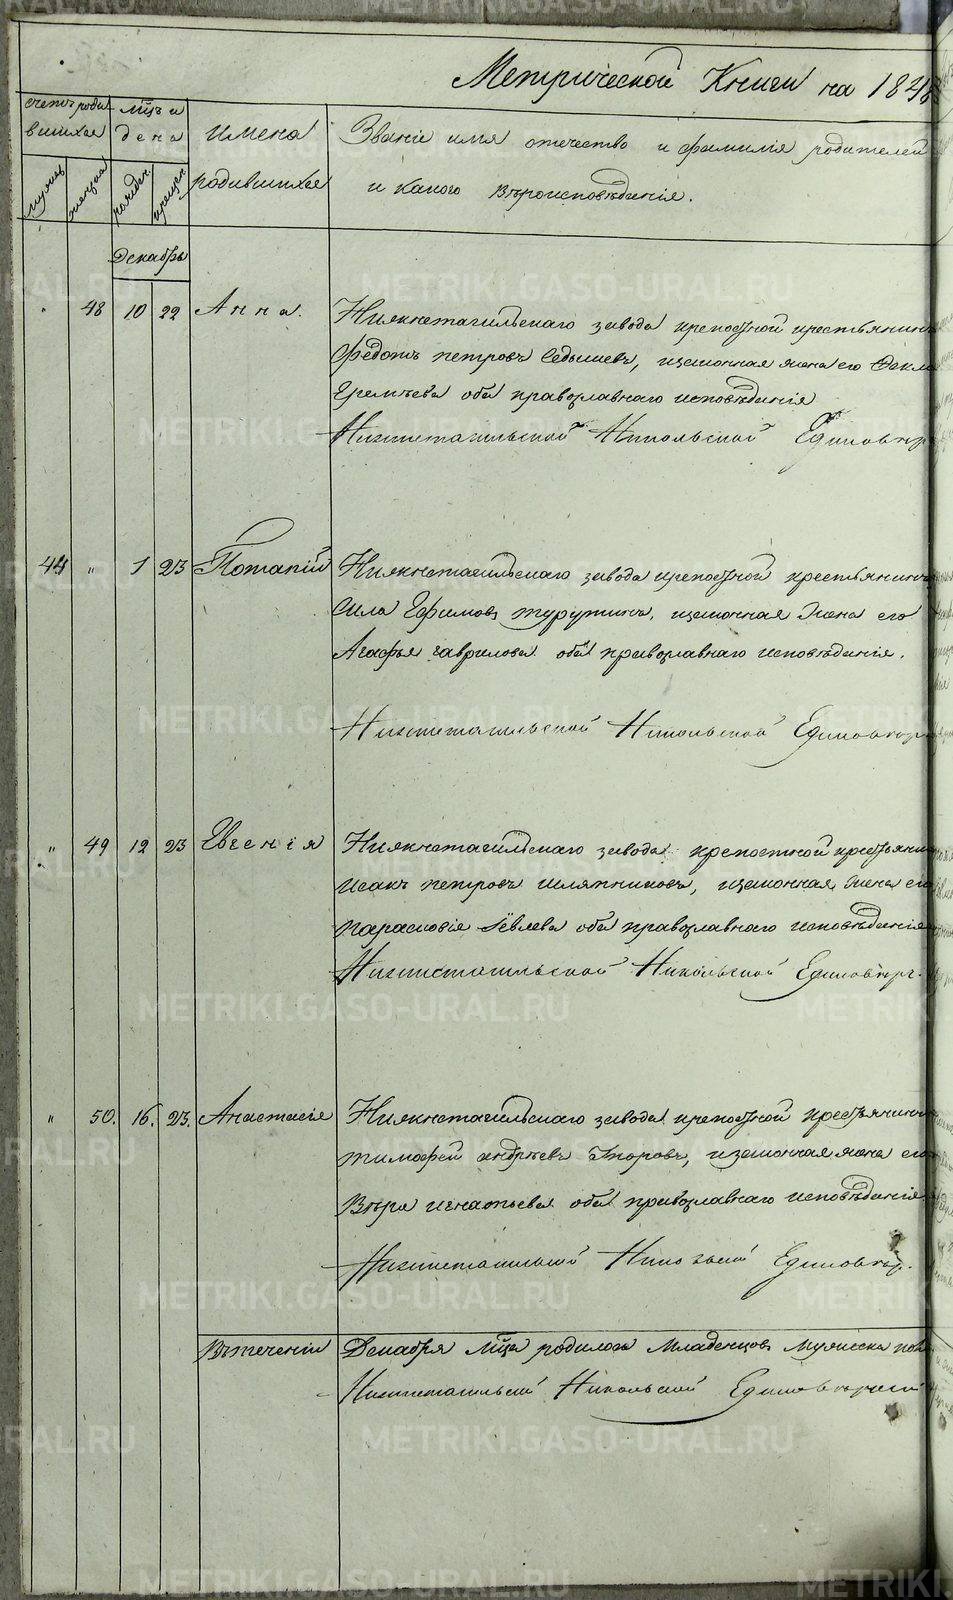 Метрической Книги на 1848
счетъ роди
вшихся
мцъ и
день
имена
родившихся
Званіе имя отечество и фамилія родителей
и какого вѣроисповѣданія.
мужеск
женска
рожден
крещен
Декабрь
48 10 22 Анна. Нижнетагильскаго завода крепостной крестьянинъ
Федотъ петровъ Седышевъ, изаконная жена его Фекла
Еремѣева оба православнаго исповѣданія
Нижнетагильской Никольской Единовѣр
44 " 1 23 Потапій Нижнетагильскаго завода крепостной крестьянинъ
Сила Ефимовъ, изаконная жена его
Агафья гаврилова оба православнаго исповѣданія.
Нижнетагильской Никольской Единовѣр
" 49 12 23 Евгенія Нижнетагильскаго завода крепостной крестьянин
Исакъ петровъ шляпниковъ, изаконная жена его
парасковія Іёвлева оба православнаго исповѣданія
Нижнетагильской Никольской Единовѣрч.
" 50. 16. 23. Анастасія Нижнетагильскаго завода крепостной крестьянинъ
тимофей андрѣевъ Егоровъ, изаконная жена его
Вѣра игнатьева оба православнаго исповѣданія
Нижнетагильской Никольской Единовѣр.
Втеченіи Декабря мца родилось Младенцовъ Мужеска пола
Нижнетагильской Никольской Единовѣрческой
METRIKI.GASO-URAL.RU